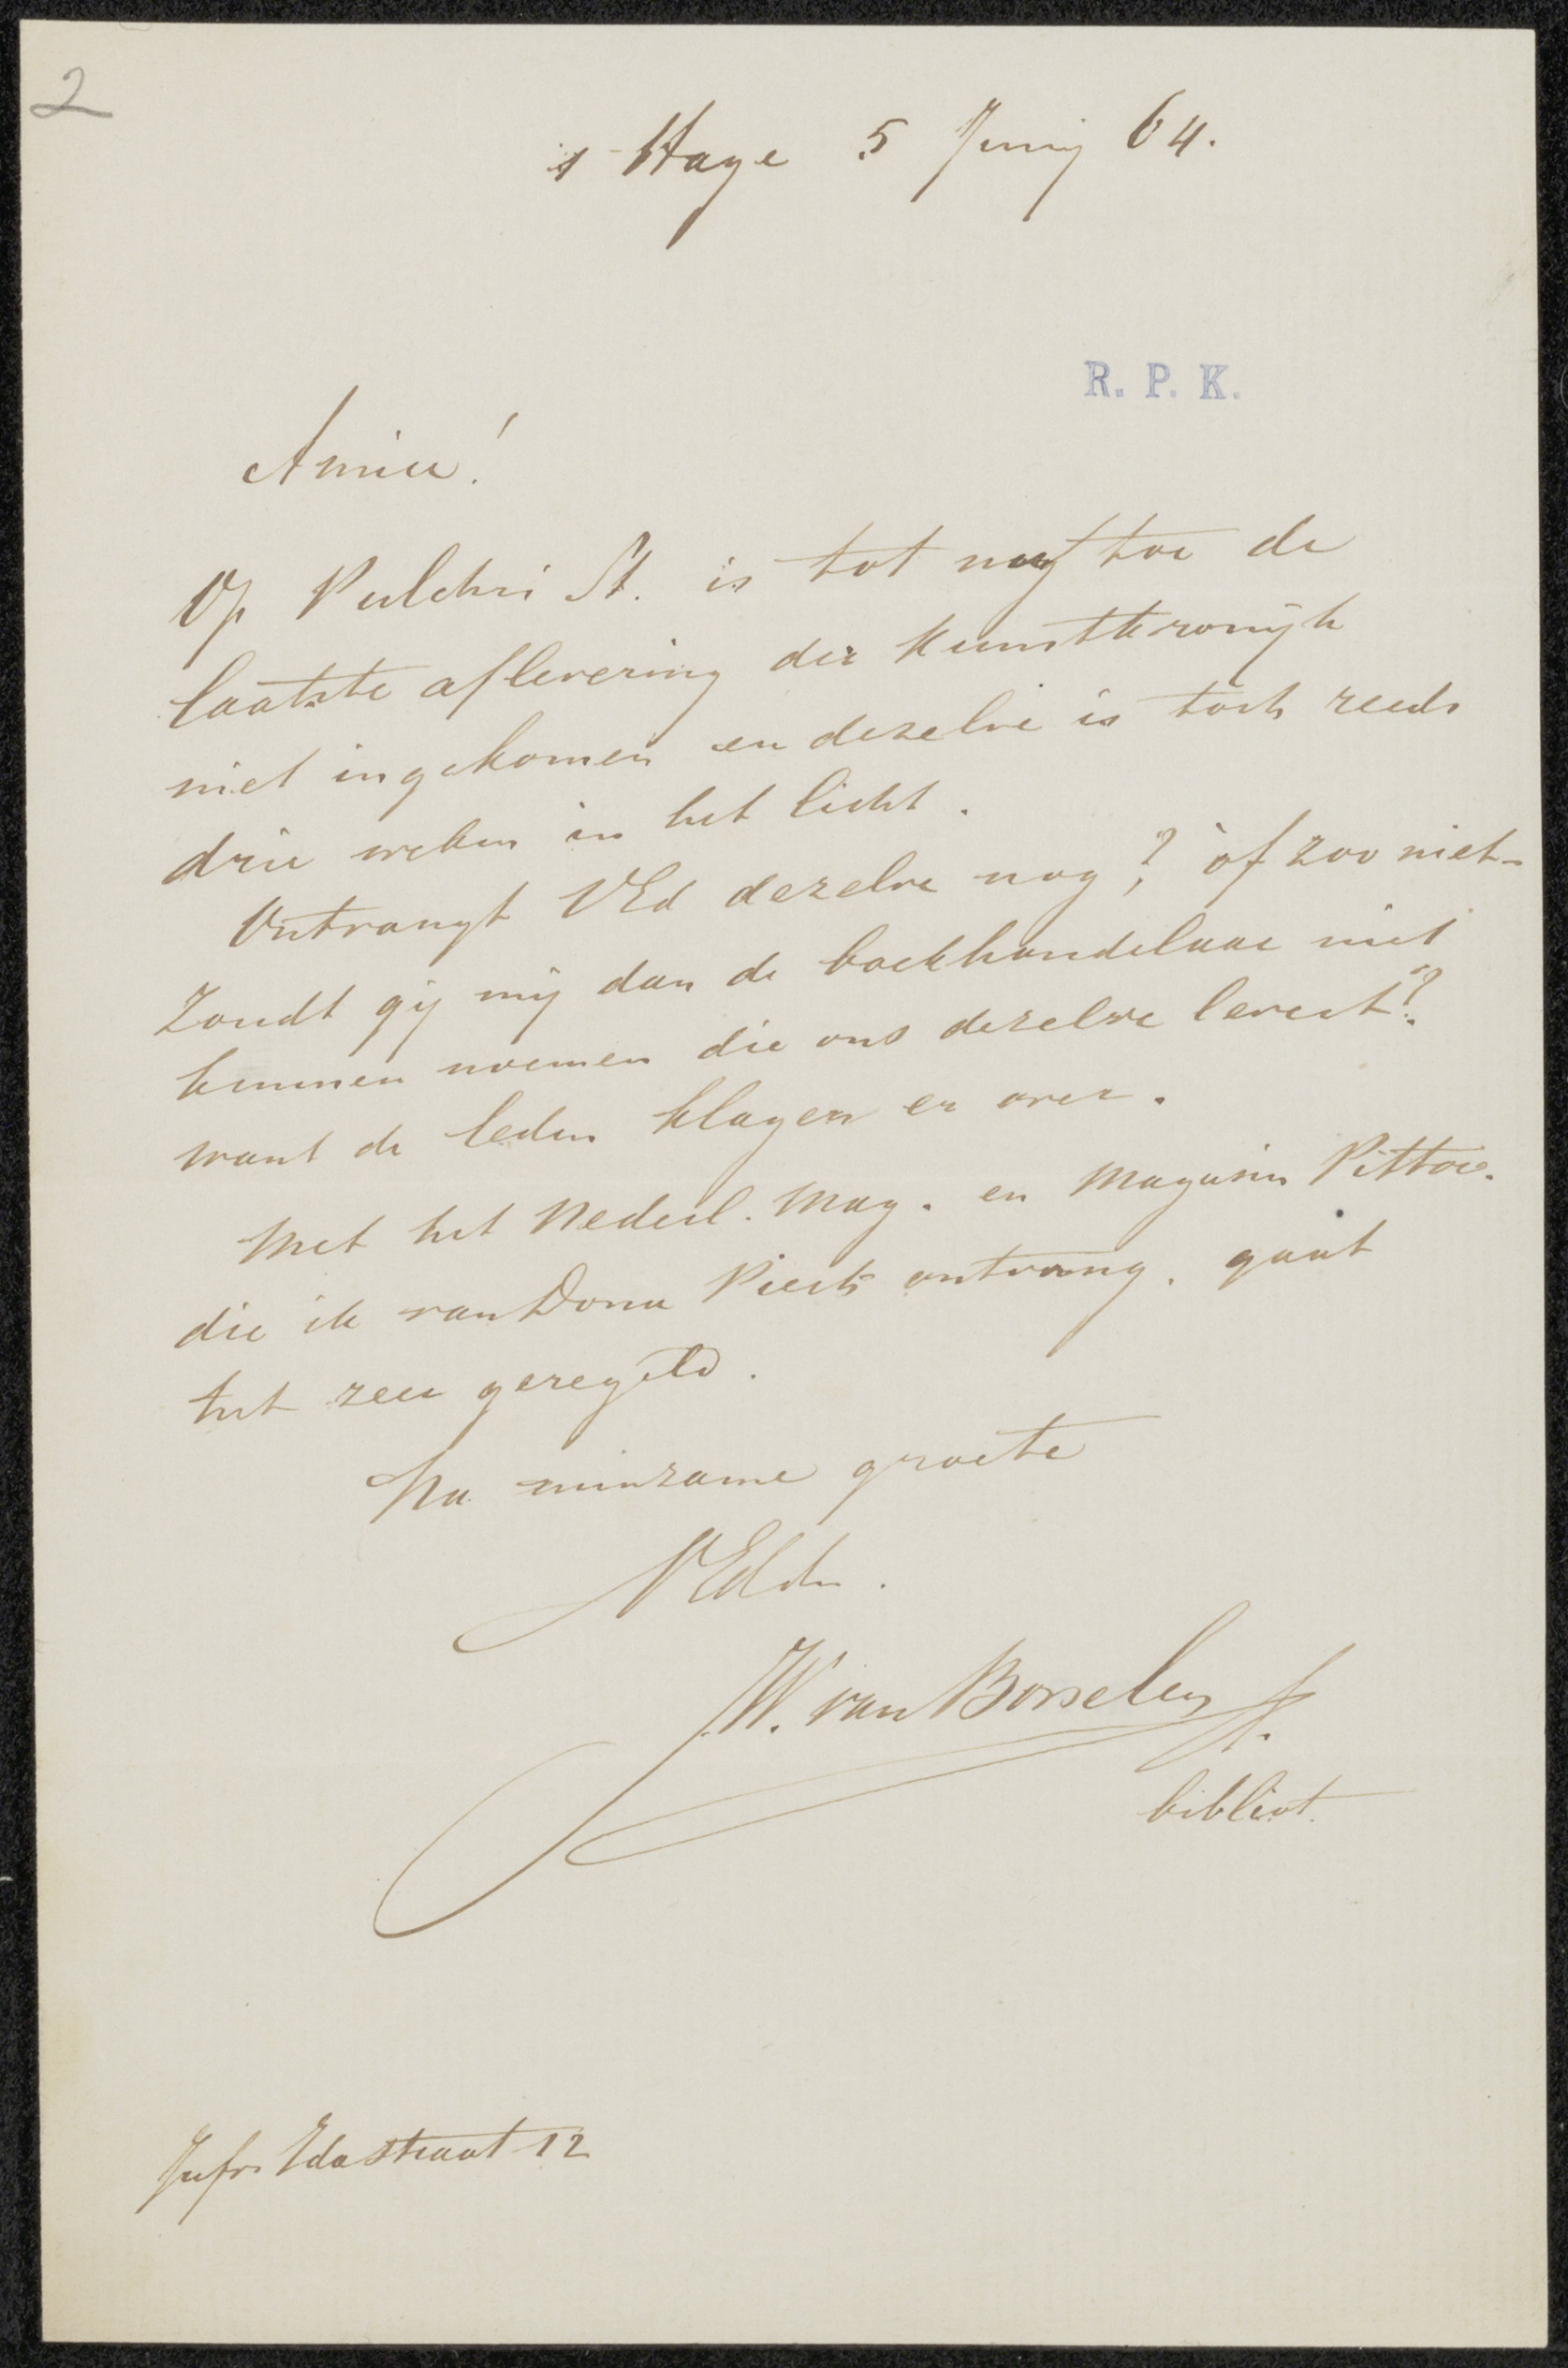 2
's Hage 5 Junij 64.
R. P. K.
Amice!
Op Pulchri St. is tot nog toe de
laatste aflevering der Kunstkronijk
niet ingekomen en dezelve is toch reeds
drie weken in het licht.
Ontvangt UEd dezelve nog? òf zoo niet-
Zoudt gij mij dan de boekhandelaar niet
kunnen noemen die ons dezelve levert?
want de leden klagen er over.
Met het Nederl. Mag. en Magasin Pittor.
die ik van Dona Pierts ontvang. gaat
het zeer geregeld.
Na minzame groete
UEddn.
W. van Borselen Jr.
bibliot.
Jufr. Idastraat 12